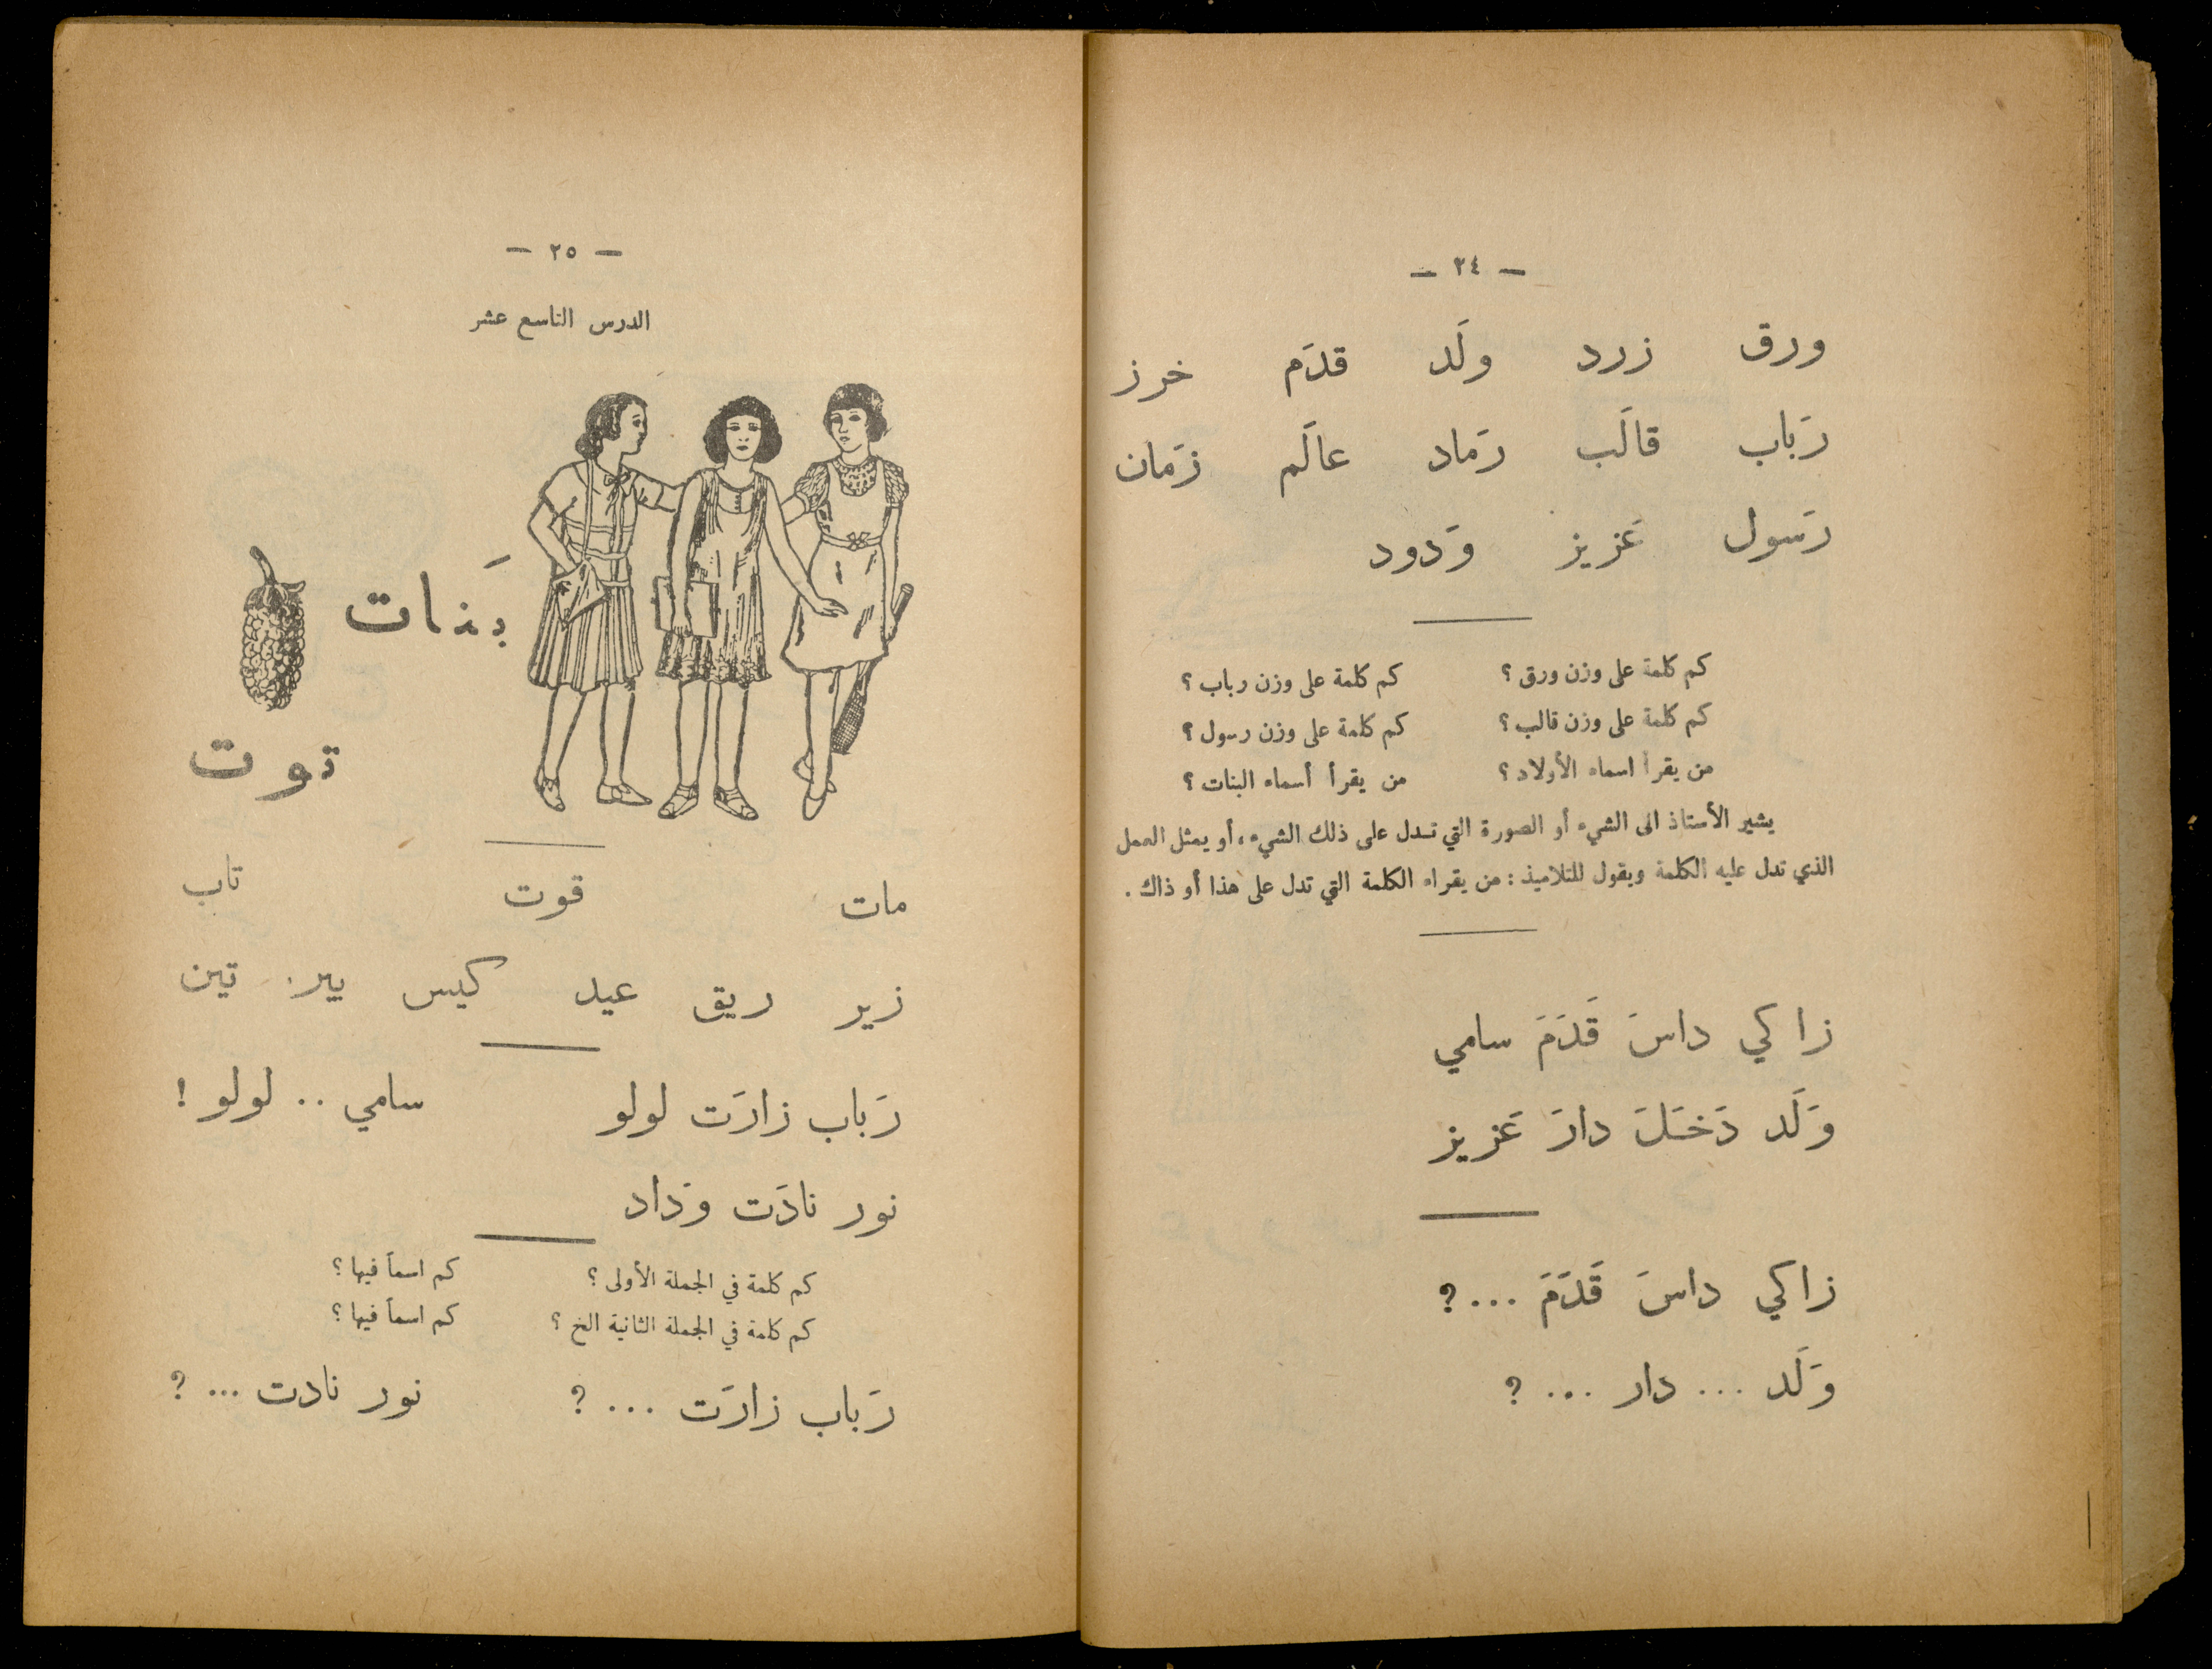 — ٢٤ —
ورق زرد ولَد قدَم خرز
رَباب قالَب رَماد عالَم زَمان
رَسول عَزيز وَدود
كم كلمة على وزن ورق ؟ كم كلمة على وزن رباب ؟
كم كلمة على وزن قالب ؟ كم كلمة على وزن رسول ؟
من يقرأ اسماء الأولاد ؟ من يقرأ أسماء البنات ؟
يشير الأستاذ الى الشيء أو الصورة التي تدل على ذلك الشيء ، أو يمثل العمل
الذي تدل عليه الكلمة ويقول للتلاميذ : من يقراء الكلمة التي تدل على هذا أو ذاك .
زاكي داسَ قَدَمَ سامي
وَلَد دَخَلَ دارَ عَزيز
زاكي داسَ قَدَمَ ... ؟
وَلَد ... دار ... ؟
— ٢٥ —
الدرس التاسع عشر
بَنات
توت
مات قوت تاب
زير ريق عيد كيس بير تين
رَباب زارَت لولو سامي .. لولو !
نور نادَت وَداد
كم كلمة في الجملة الأولى ؟ كم اسماً فيها ؟
كم كلمة في الجملة الثانية الخ ؟ كم اسماً فيها ؟
رَباب زارَت ... ؟ نور نادت ... ؟